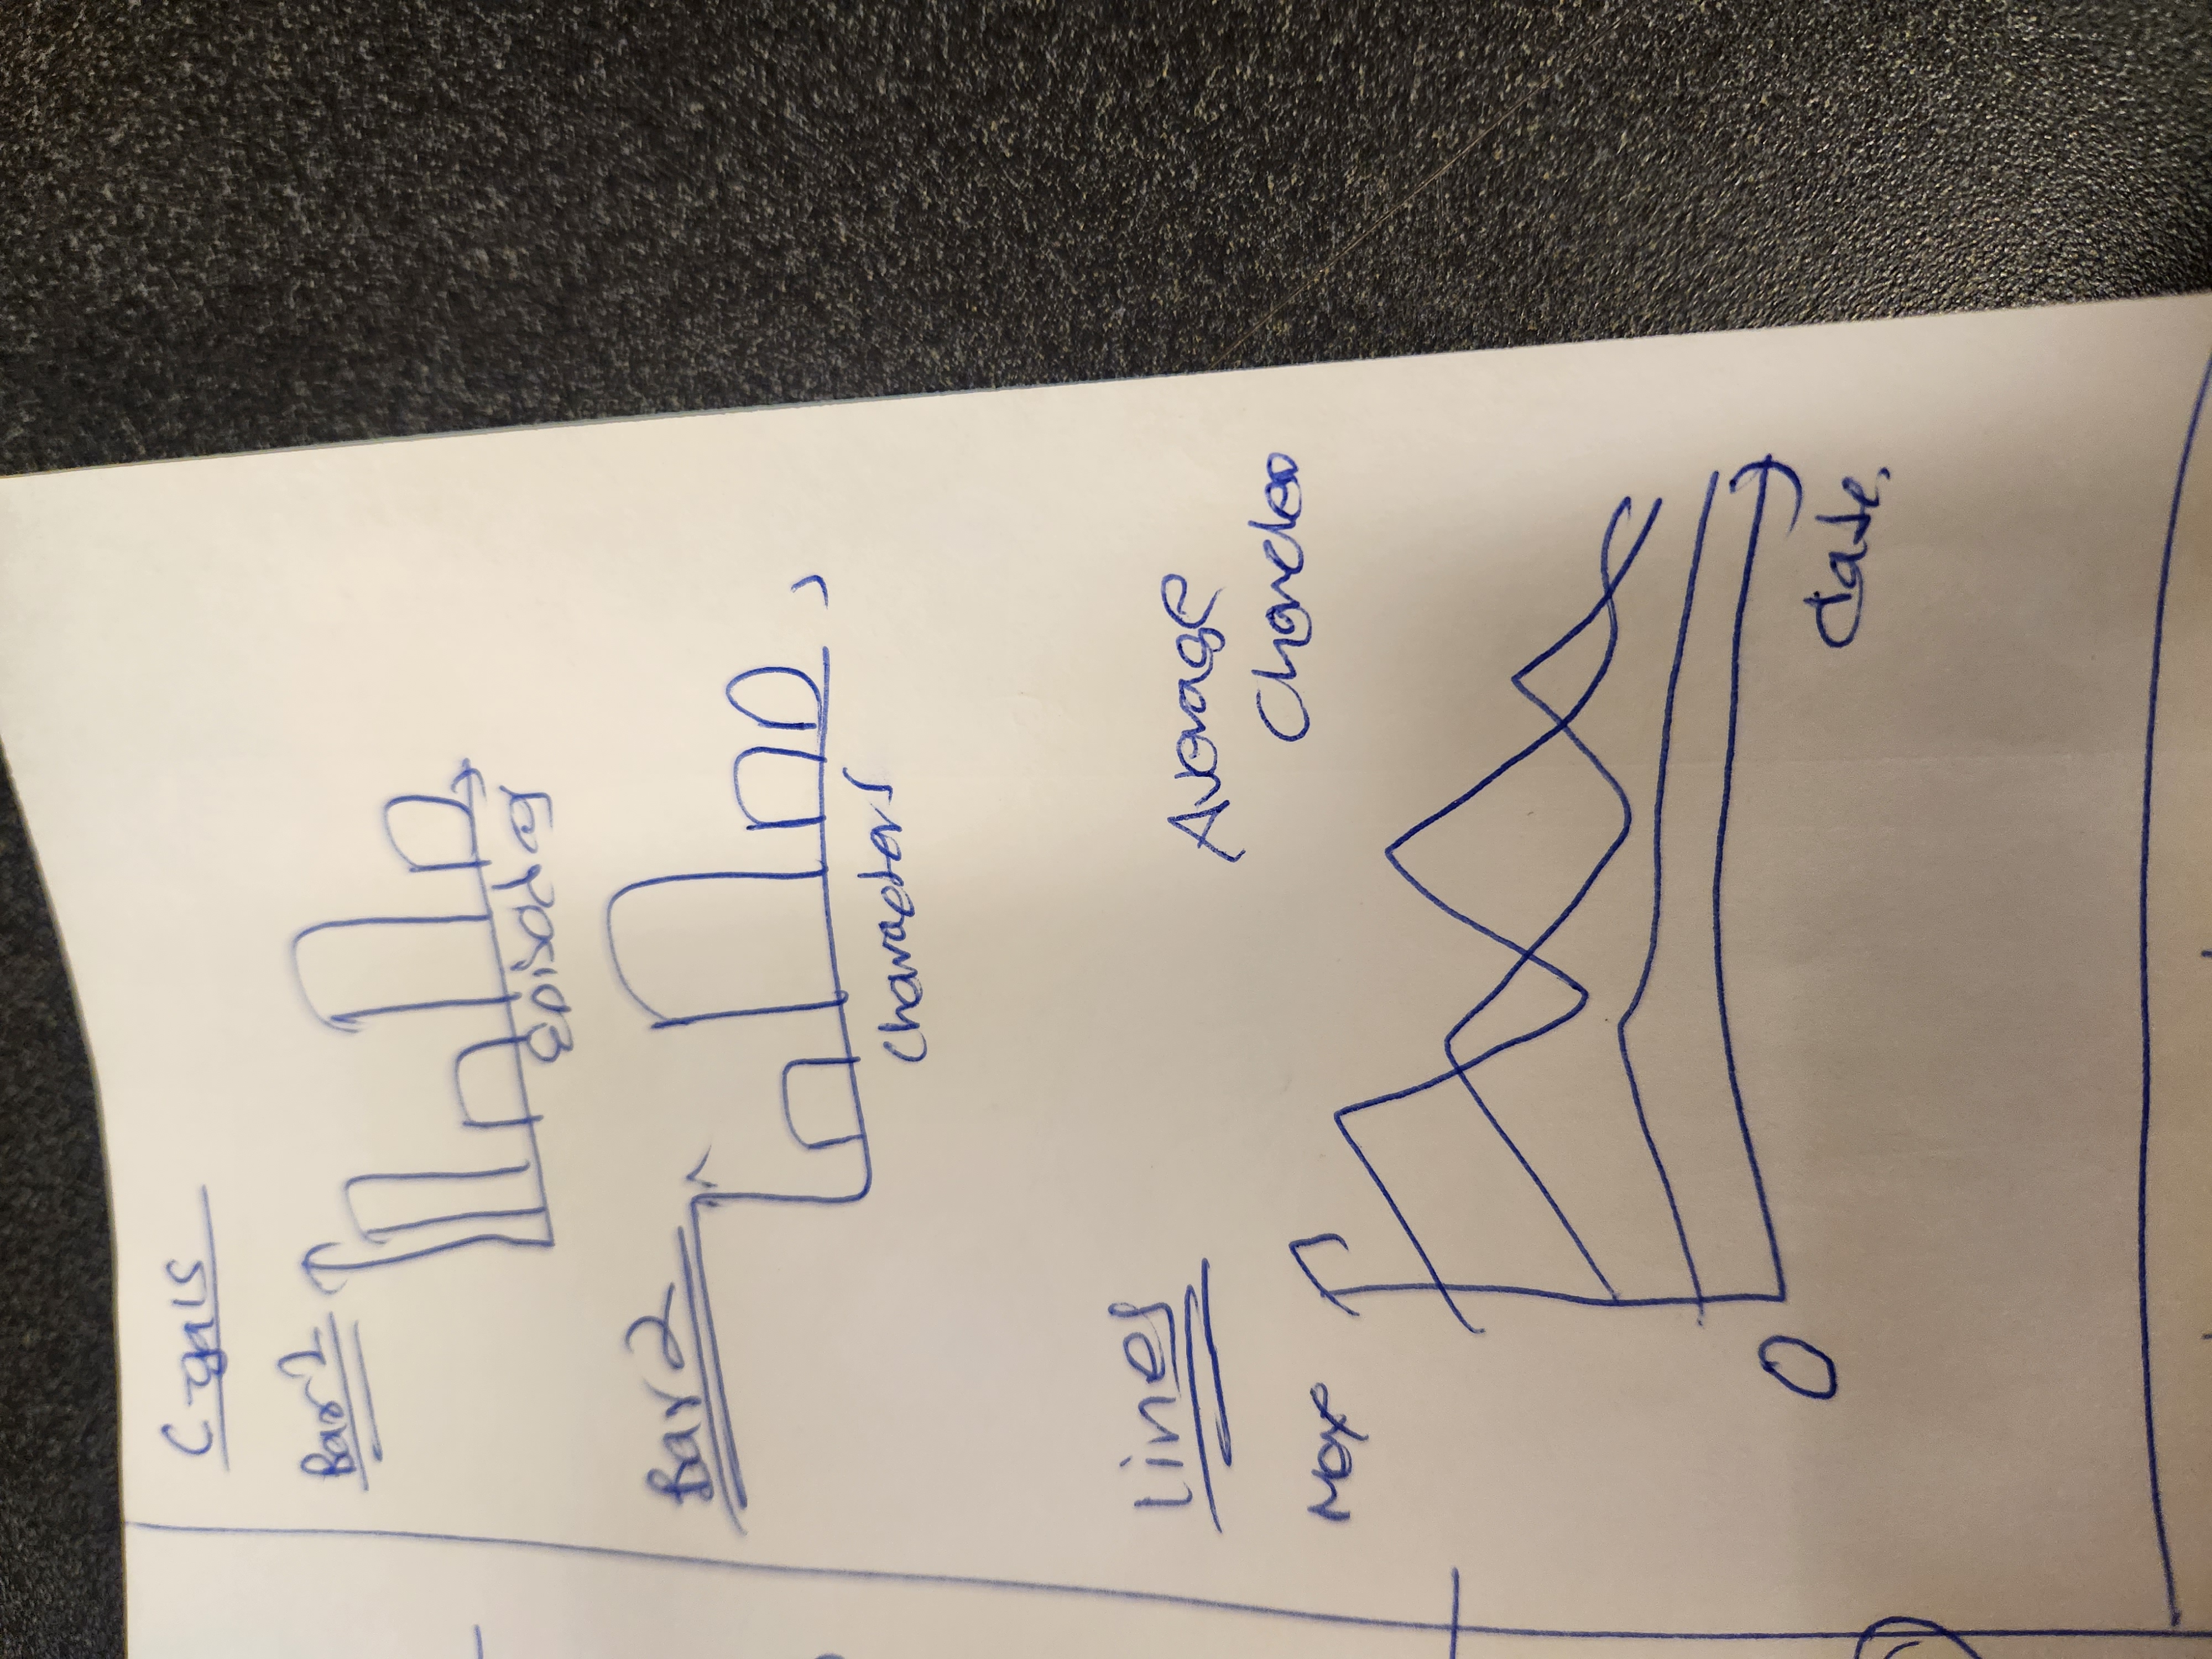 C-gals
Bar 2
Episodes
Bar 2
Characters
Lines
Average
Max
O
date.